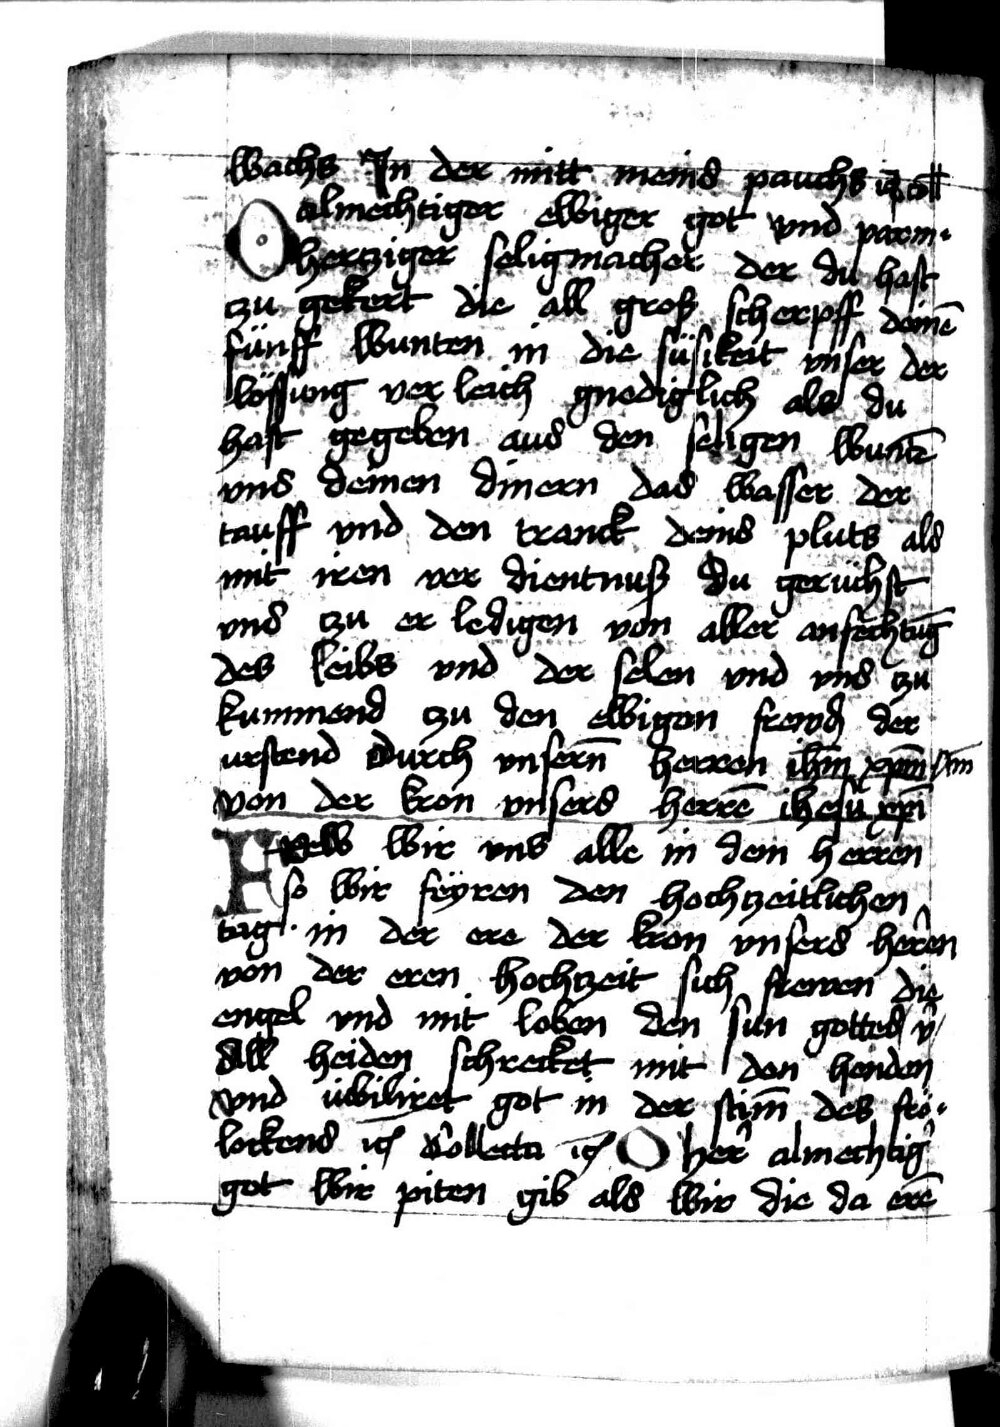 wachs In der mitt meins pauchs
O almechtiger ewiger got vnd parm-
hertziger seligmacher der du hast
tzu gekert die all groß scherpff deinē
fünff wunten in die süsikeit vnser der
lössung ver leich gnediglich als du
hast gegeben aus den seligen wuntē
vns deinen dinern das wasser der
tauff vnd den tranck deins pluts als
mit iren ver dientnuß du geruchst
vns tzu er ledigen von aller anfechtūg
des leibs vnd der selen vnd vns tzu
kummend tzu den ewigen frewd der
urstend durch vnsern̄ herren ihm̄ xpm̄
von der kron vnsers herrē ihesu xpī
Frew wir vns alle in dem herren
so wir feyren den hochtzeitlichen
tag in der ere der kron vnsers herren
von der eren hochtzeit sich frewen die
engel vnd mit loben den sun gottes
All heiden schrecket mit den henden
vnd iubiliret got in der stim̄ des fro-
lockens Collecta O her almechtig
got wir piten gib als wir die da erē